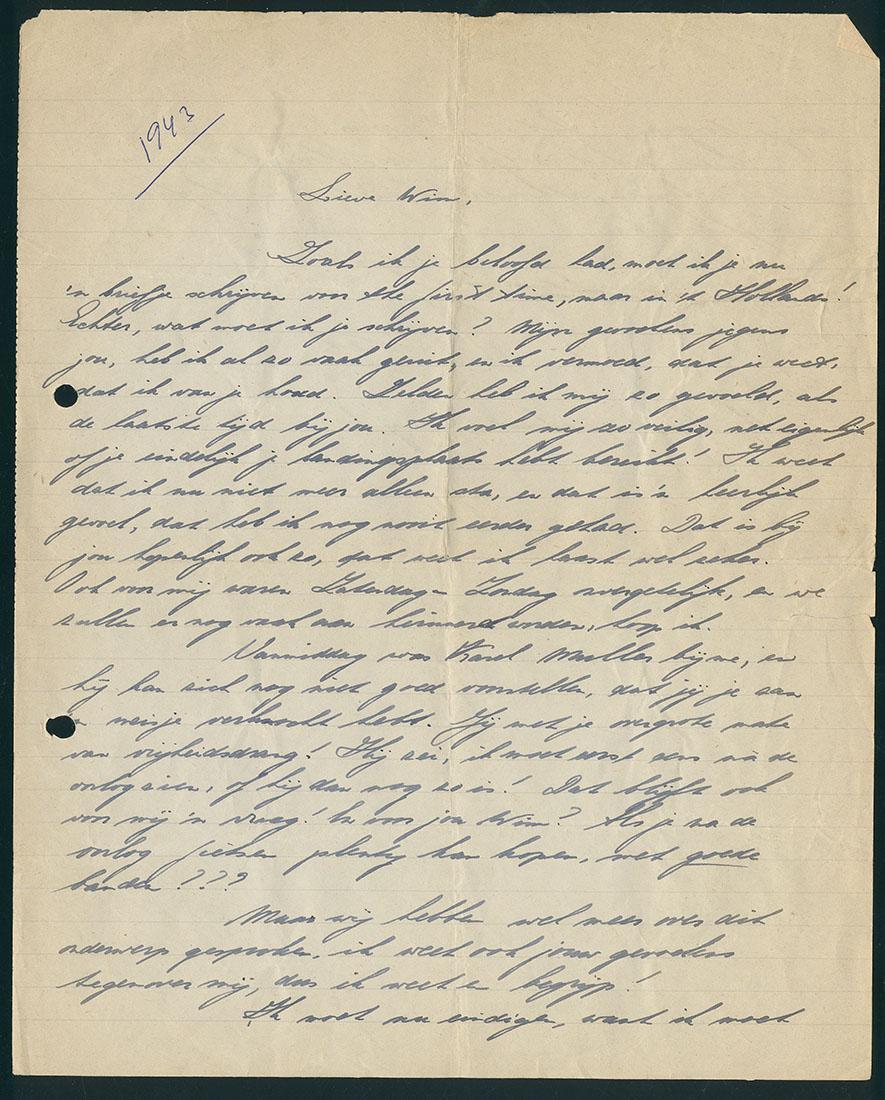 1943
Lieve Wim,
Zoals ik je beloofd had, moet ik je nu
'n briefje schrijven voor the first time, maar in 't Hollands!
Echter, wat moet ik je schrijven? Mijn gevoelens jegens
jou, heb ik al zo vaak geuit, en ik vermoed, dat je weet,
dat ik van je houd. Zelden heb ik mij zo gevoeld, als
de laatste tijd bij jou. Ik voel mij zo veilig, net eigenlijk
of je eindelijk je landingsplaats hebt bereikt! Ik weet
dat ik nu niet meer alleen sta, en dat is 'n heerlijk
gevoel, dat heb ik nog nooit eerder gehad. Dat is bij
jou hopenlijk ook zo, dat weet ik haast wel zeker.
Ook voor mij waren Zaterdag - Zondag onvergetelijk, en we
zullen er nog vaak aan herinnerd worden, hoop ik.
Vanmiddag was Karel Muller bij me, en
hij kan zich nog niet goed voorstellen, dat jij je aan
'n meisje verknocht hebt. Jij met je overgrote mate
van vrijheidsdrang! Hij zei, ik moet eerst eens na de
oorlog zien, of hij dan nog zo is! Dat blijft ook
voor mij 'n vraag! En voor jou Wim? Als je na de
oorlog fietsen plenty kan kopen, met goede
banden???
Maar wij hebben wel meer over dit
onderwerp gesproken, ik weet ook jouw gevoelens
tegenover mij, dus ik weet en begrijp!
Ik moet nu eindigen, want ik moet